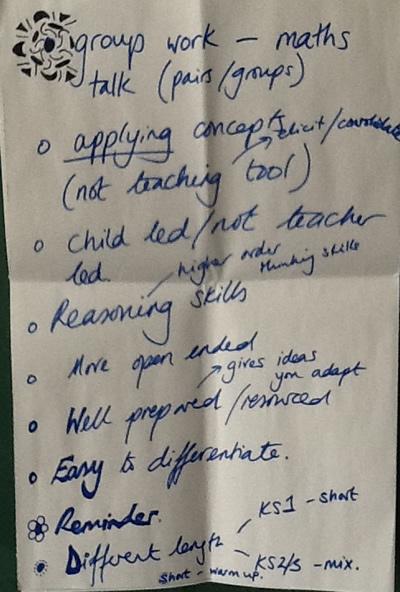 group work - maths
talk (pairs/groups)
applying concepts elicit/consolidate
(not teaching tool)
child led/not teacher
led.
higher order
thinking skills
Reasoning skills
More open ended
gives ideas
you adapt
Well prepared/resourced
Easy to differentiate.
Reminder.
KS1 - short
Different length
KS2/3 - mix.
short - warm up.